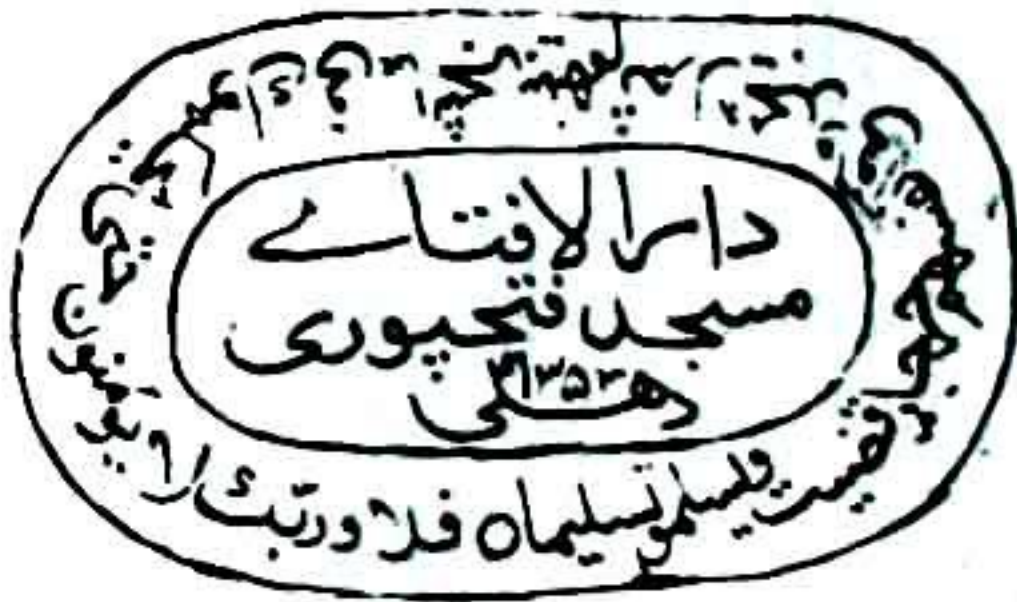 دارالافتاے
مسجد فتحپوری
دهلی ۱۳۵۳
فلا وربّك لا يؤمنون حتى يحكموك فيما شجر بينهم ثم لا يجدوا في انفسهم حرجا مما قضيت ويسلموا تسليما